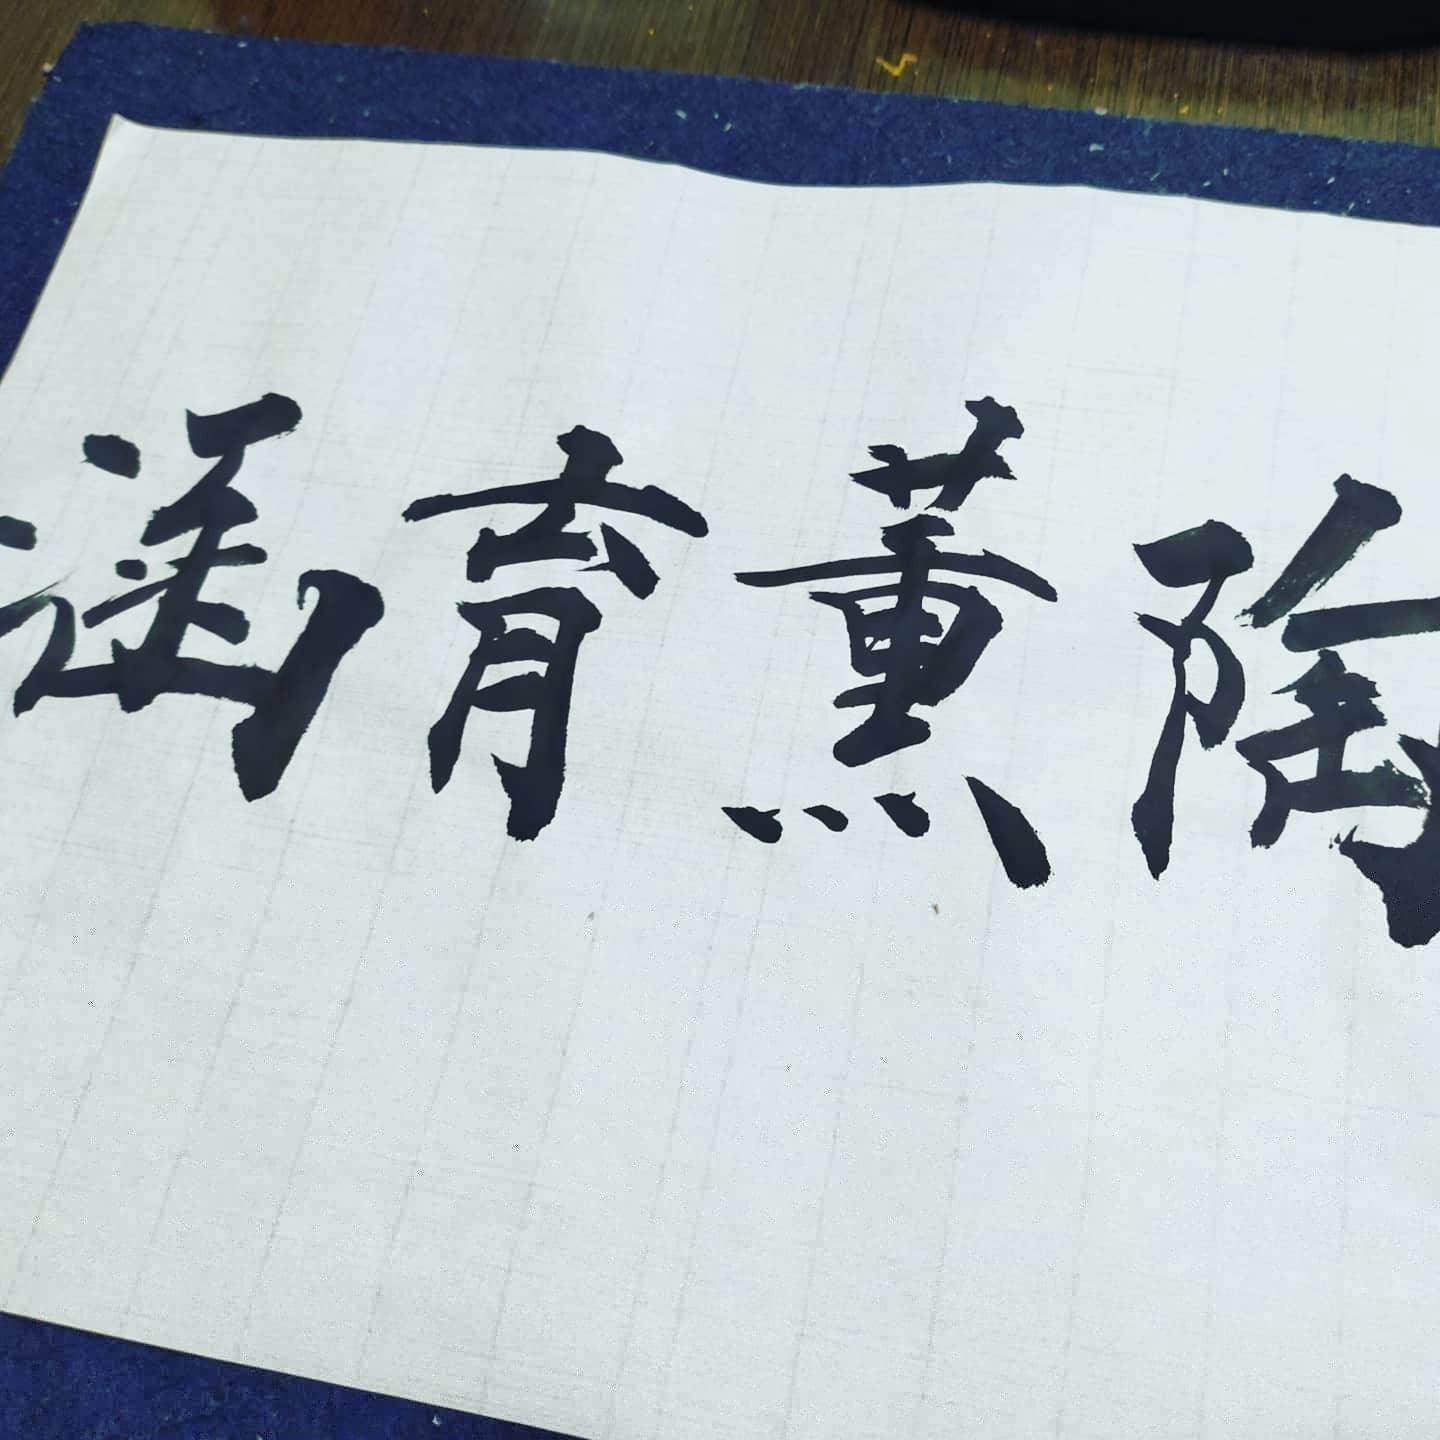 涵育薰陶